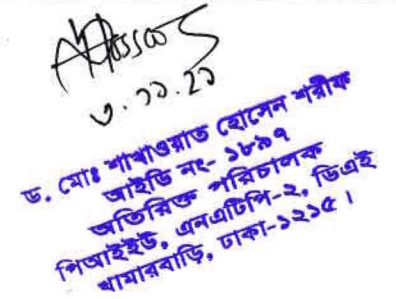 ৩.১১.২১
ড. মোঃ শাখাওয়াত হোসেন শরীফ
আইডি নং- ১৮৯৭
অতিরিক্ত পরিচালক
পিআইইউ, এনএটিপি-২, ডিএই
খামারবাড়ি, ঢাকা-১২১৫।